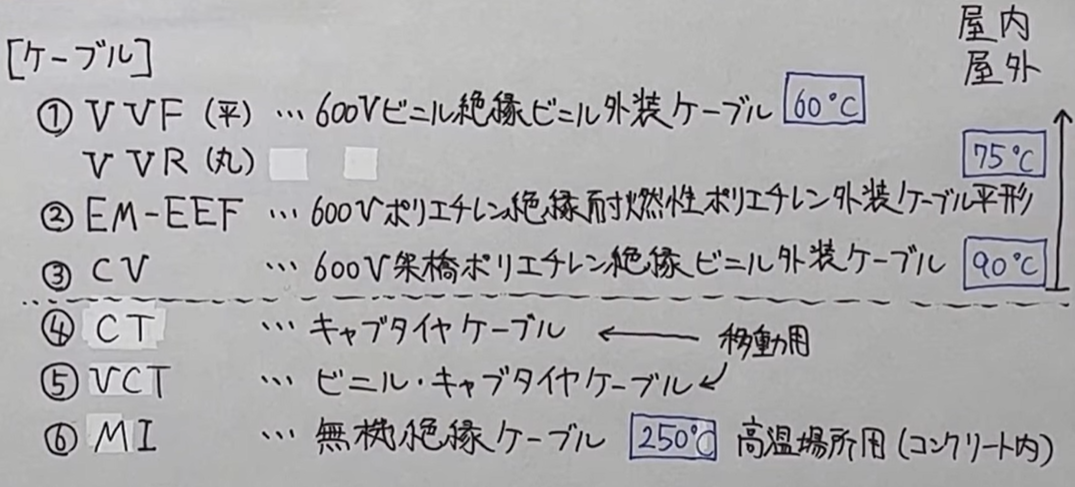 屋内
屋外
[ケーブル]
① VVF (平) … 600Vビニル絶縁ビニル外装ケーブル 60°C
VVR (丸)
75°C
② EM-EEF … 600Vポリエチレン絶縁耐燃性ポリエチレン外装ケーブル平形
③ CV … 600V架橋ポリエチレン絶縁ビニル外装ケーブル 90°C
④ CT … キャブタイヤケーブル ← 移動用
⑤ VCT … ビニル・キャブタイヤケーブル
⑥ MI … 無機絶縁ケーブル 250°C 高温場所用(コンクリート内)